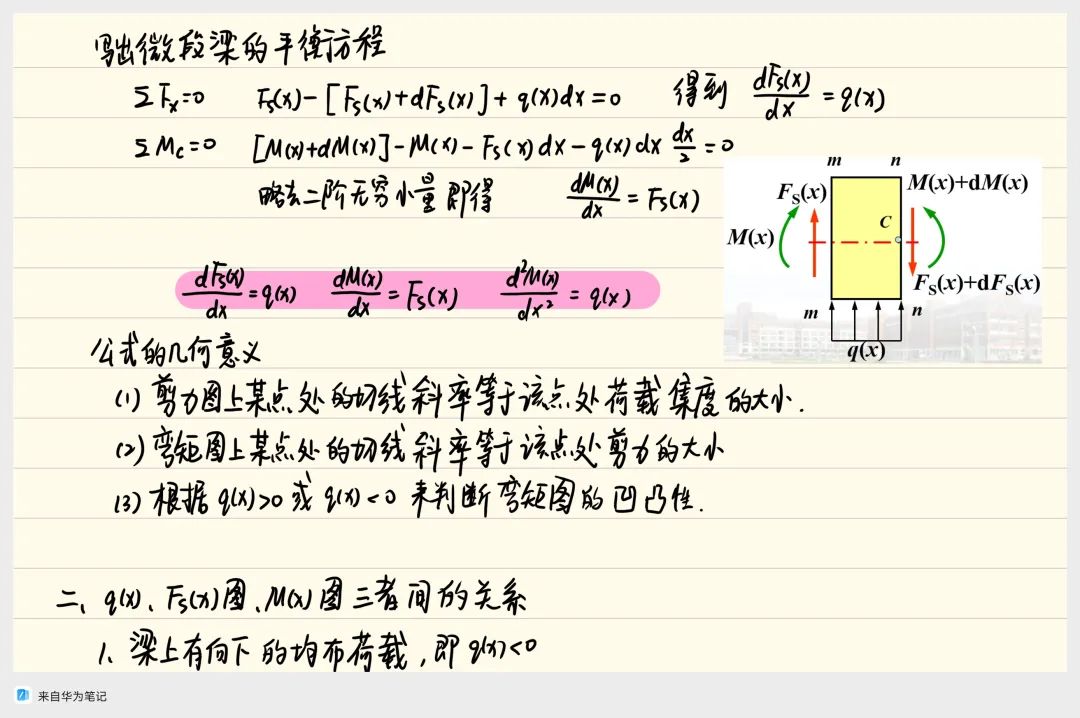 写出微段梁的平衡方程
ΣFx=0 Fs(x)-[Fs(x)+dFs(x)]+q(x)dx=0 得到 dFs(x)/dx=q(x)
ΣMc=0 [M(x)+dM(x)]-M(x)-Fs(x)dx-q(x)dx dx/2=0
略去二阶无穷小量即得 dM(x)/dx=Fs(x)
m n
Fs(x) M(x)+dM(x)
C
M(x)
Fs(x)+dFs(x)
m n
q(x)
dFs(x)/dx=q(x) dM(x)/dx=Fs(x) d²M(x)/dx²=q(x)
公式的几何意义
(1) 剪力图上某点处的切线斜率等于该点处荷载集度的大小.
(2) 弯矩图上某点处的切线斜率等于该点处剪力的大小
(3) 根据q(x)>0或q(x)<0来判断弯矩图的凹凸性.
二、q(x)、Fs(x)图、M(x)图三者间的关系
1、梁上有向下的均布荷载,即q(x)<0
来自华为笔记